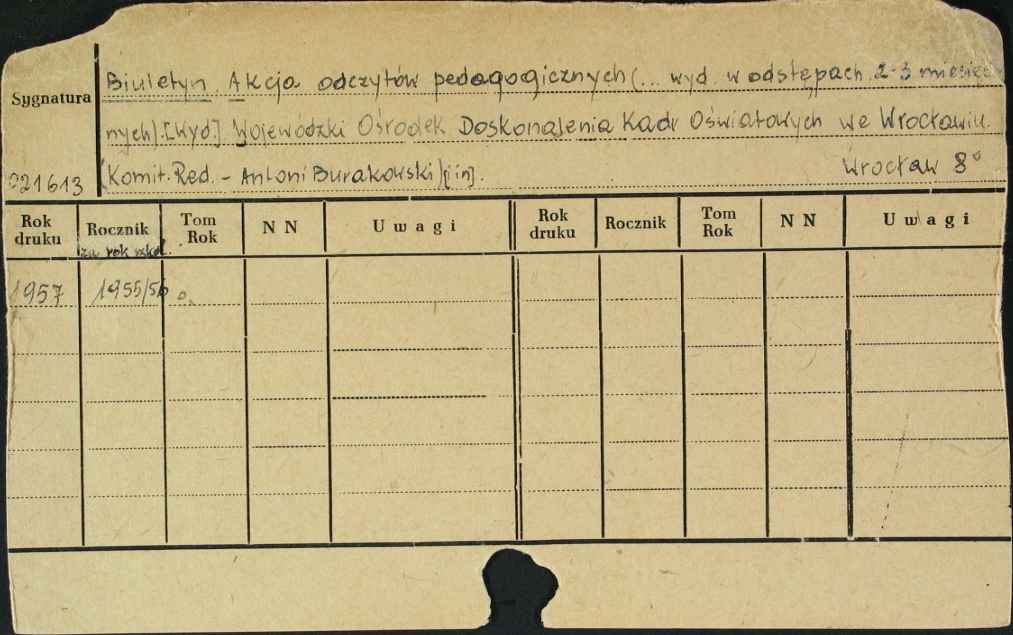 Biuletyn. Akcja odczytów pedagogicznych (... wyd. w odstępach 2-3 miesięcz
Sygnatura
nych). [Wyd.] Wojewódzki Ośrodek Doskonalenia Kadr Oświatowych we Wrocławiu.
021613 (Komit. Red. - Antoni Burakowski) [i in]. Wrocław 8°
Rok druku Rocznik Tom Rok NN Uwagi Rok druku Rocznik Tom Rok NN Uwagi
za rok szkol.
1957 1955/56